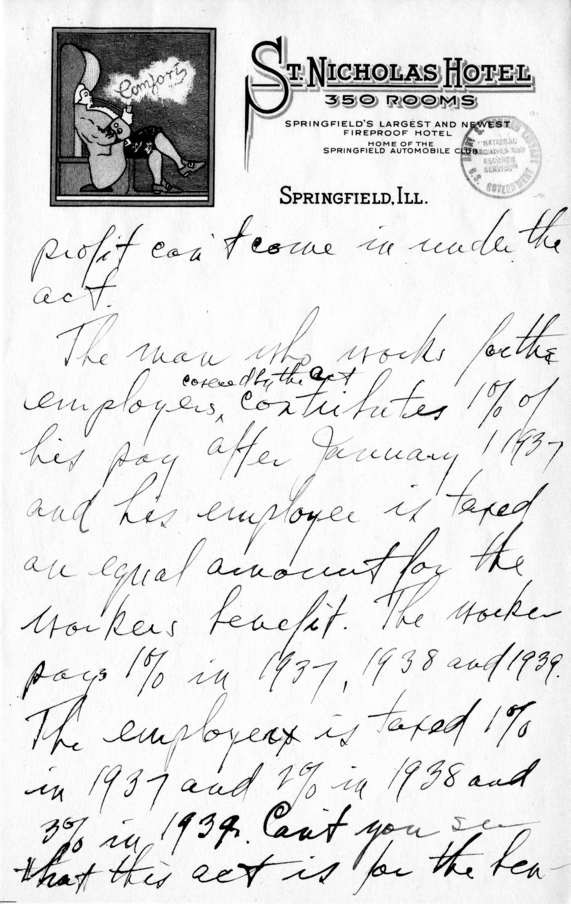 Comfort
ST. NICHOLAS HOTEL
350 ROOMS
SPRINGFIELD'S LARGEST AND NEWEST
FIREPROOF HOTEL
HOME OF THE
SPRINGFIELD AUTOMOBILE CLUB
NATIONAL
ARCHIVES AND
RECORDS
SERVICE
U.S. GOVERNMENT
SPRINGFIELD, ILL.
profit can't come in under the
act.
The man who works for the
covered by the act
employers, contributes 1% of
his pay after January 1 1937
and his employee is taxed
an equal amount for the
workers benefit. The worker
pays 1% in 1937, 1938 and 1939.
The employer is taxed 1%
in 1937 and 2% in 1938 and
3% in 1939. Can't you see
that this act is for the ben-